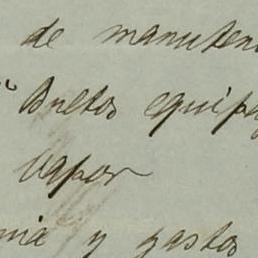 de manuten
Bultos equipa
vapor
nia y gastos